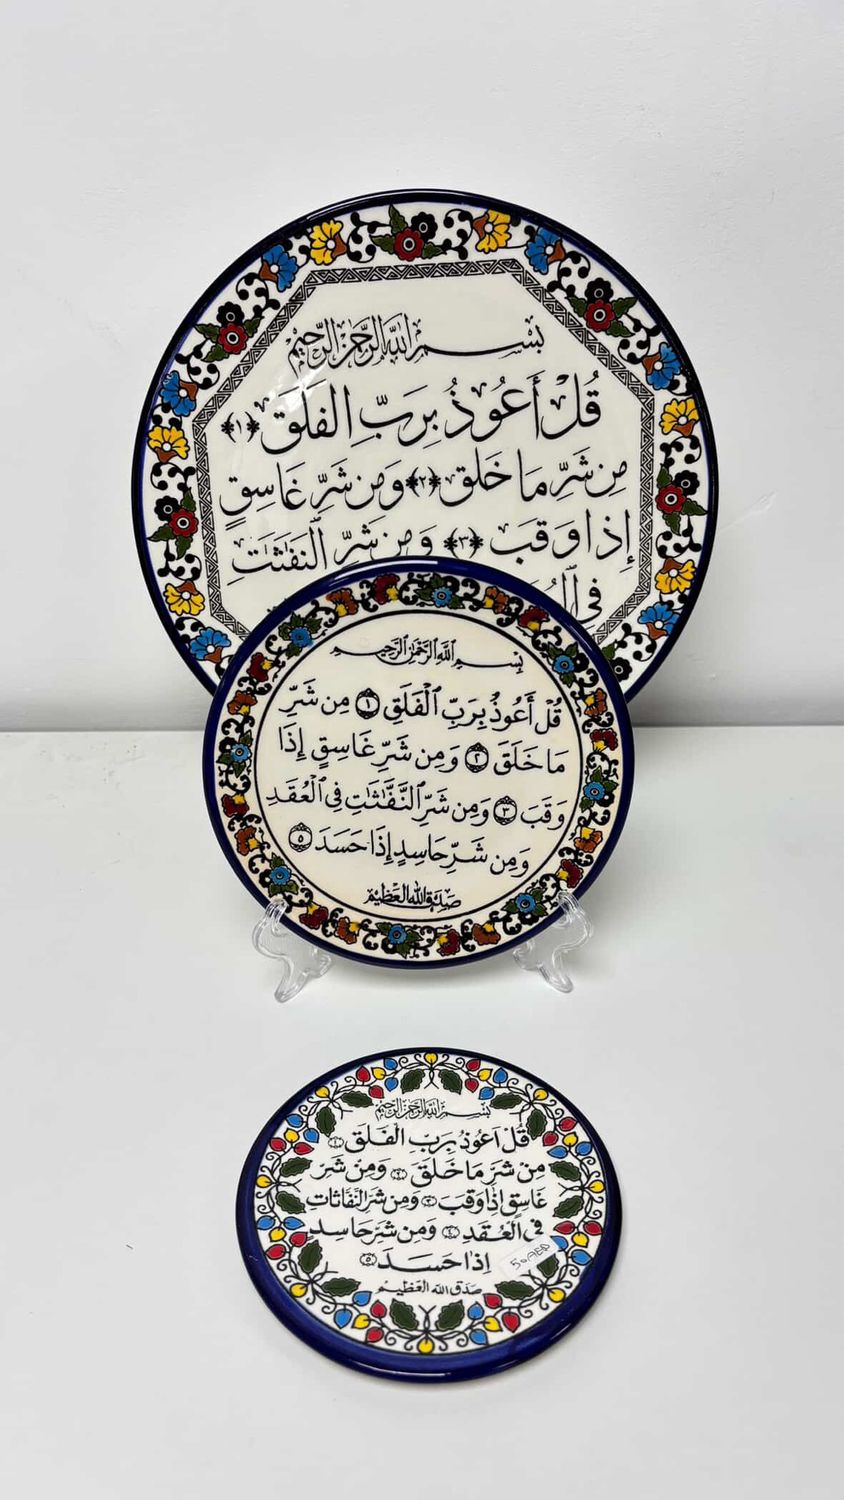 بسم الله الرحمن الرحيم
قُلْ أَعُوذُ بِرَبِّ الفَلَقِ ﴿١﴾
مِن شَرِّ مَا خَلَقَ ﴿٢﴾ وَمِن شَرِّ غَاسِقٍ
إِذَا وَقَبَ ﴿٣﴾ وَمِن شَرِّ ٱلنَّفَّٰثَٰتِ
فِى
بِسْمِ ٱللَّهِ ٱلرَّحْمَٰنِ ٱلرَّحِيمِ
قُلْ أَعُوذُ بِرَبِّ ٱلْفَلَقِ ١ مِن شَرِّ
مَا خَلَقَ ٢ وَمِن شَرِّ غَاسِقٍ إِذَا
وَقَبَ ٣ وَمِن شَرِّ ٱلنَّفَّٰثَٰتِ فِى ٱلْعُقَدِ
وَمِن شَرِّ حَاسِدٍ إِذَا حَسَدَ ٥
صدق الله العظيم
بسم الله الرحمن الرحيم
قُلْ اَعُوذُ بِرَبِّ الْفَلَقِ ﴿١﴾
مِنْ شَرِّ مَا خَلَقَ ﴿٢﴾ وَمِنْ شَرِّ
غَاسِقٍ اِذَا وَقَبَ ﴿٣﴾ وَمِنْ شَرِّ النَّفَّاثَاتِ
فِي الْعُقَدِ ﴿٤﴾ وَمِنْ شَرِّ حَاسِدٍ
اِذَا حَسَدَ ﴿٥﴾
50 AED
صدق الله العظيم